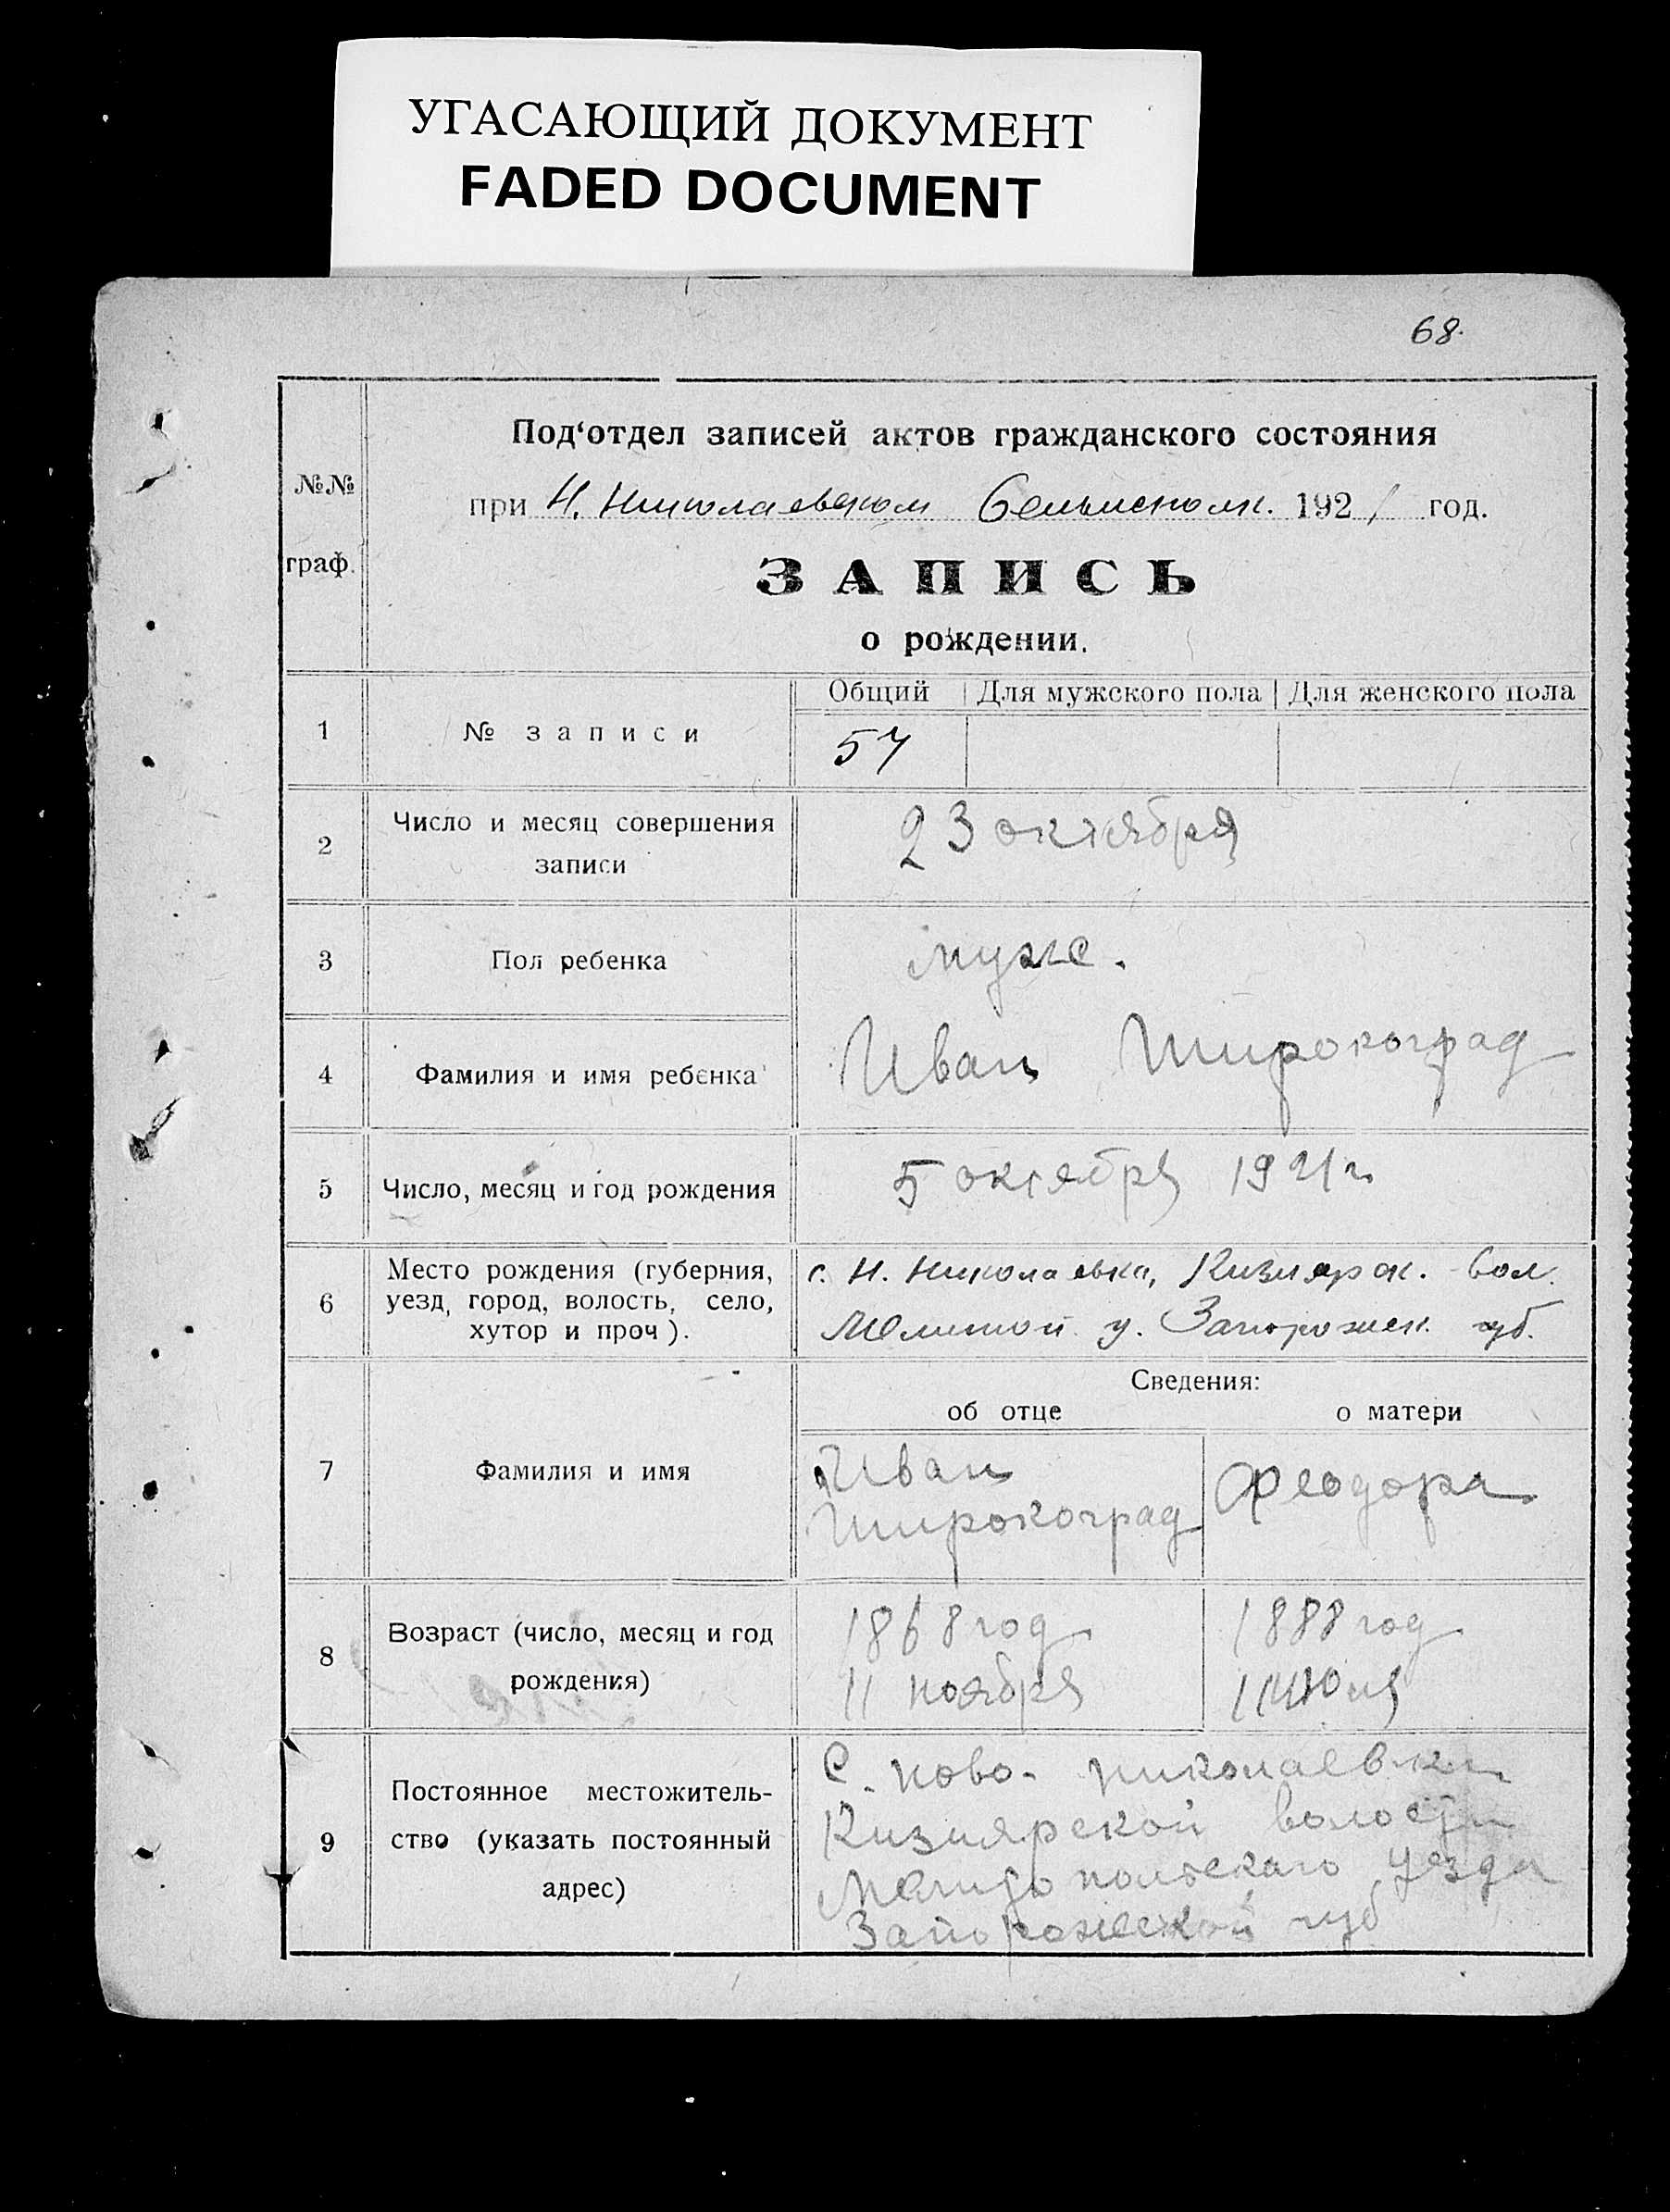 УГАСАЮЩИЙ ДОКУМЕНТ
FADED DOCUMENT
68.
№№
граф.
Под‘отдел записей актов гражданского состояния
при Н. Николаевском Сельисполк. 1921 год.
ЗАПИСЬ
о рождении.
1 № записи
Общий Для мужского пола Для женского пола
57
2 Число и месяц совершения
записи
23 октября
3 Пол ребенка
муже.
4 Фамилия и имя ребенка
Иван Широкоград
5 Число, месяц и год рождения
5 октября 1921 г.
6 Место рождения (губерния,
уезд, город, волость, село,
хутор и проч).
с. Н. Николаевка, Кизиярск. вол.
Мелитоп. у. Запорожск. губ.
Сведения:
об отце о матери
7 Фамилия и имя
Иван
Широкоград
Феодора
8 Возраст (число, месяц и год
рождения)
1868 год
11 ноября
1888 год
9 Постоянное местожитель-
ство (указать постоянный
адрес)
С. Ново-николаевки
Кизиярской волости
Мелитопольскаго уезда
Запорожской губ